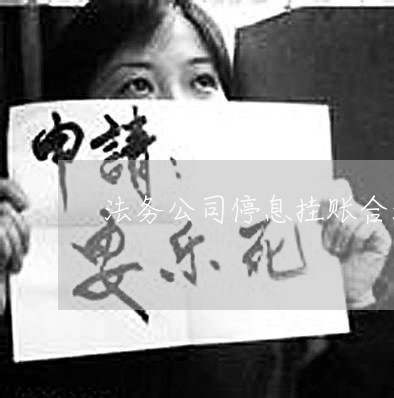 申請：
法务公司停息挂账合
安乐死